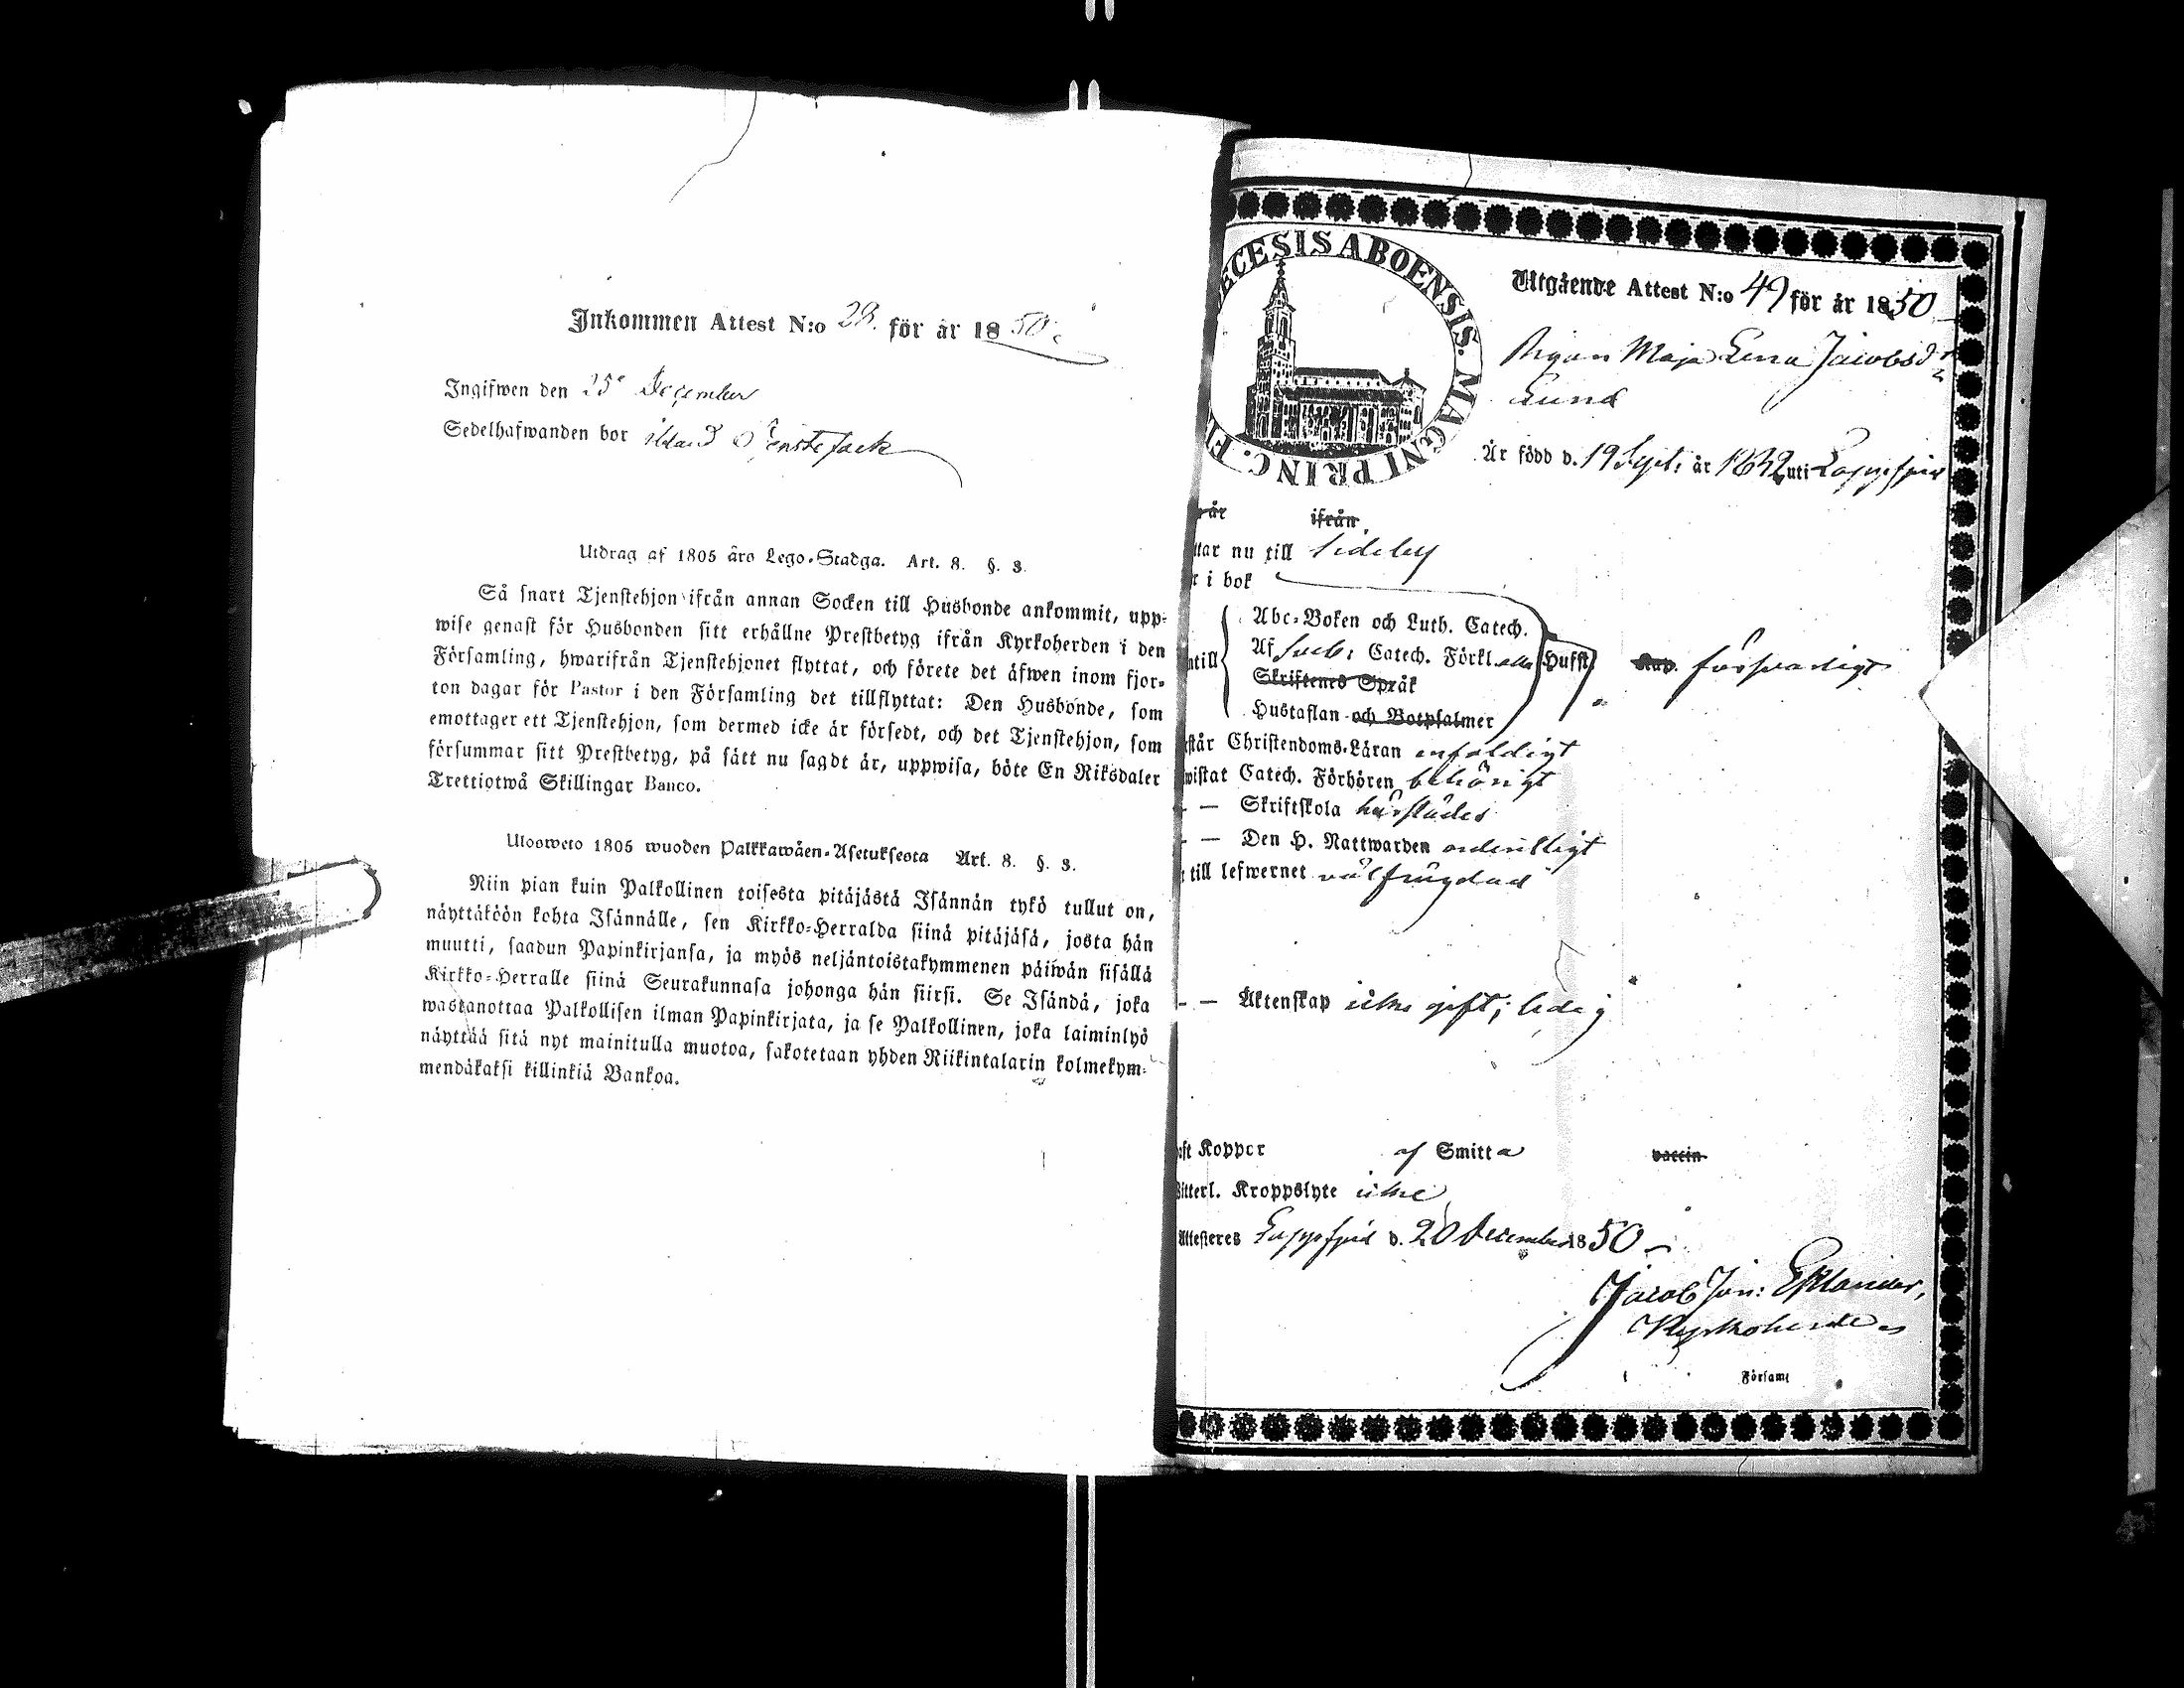 Inkommen Attest N:o 28. för år 1850.
Ingifwen den 25e December
Sedelhafwanden bor
Utdrag af 1805 års Lego-Stadga. Art. 8. §. 3.
Så snart Tjenstehjon ifrån annan Socken till Husbonde ankommit, upp-
wise genast för Husbonden sitt erhållne Prestbetyg ifrån Kyrkoherden i den
Församling, hwarifrån Tjenstehjonet flyttat, och förete det äfwen inom fjor-
ton dagar för Pastor i den Församling det tillflyttat: Den Husbonde, som
emottager ett Tjenstehjon, som dermed icke är försedt, och det Tjenstehjon, som
försummar sitt Prestbetyg, på sätt nu sagdt är, uppwisa, böte En Riksdaler
Trettiotwå Skillingar Banco.
Ulosweto 1805 wuoden Palkkawäen-Asetuksesta Art. 8. §. 3.
Niin pian kuin Palkollinen toisesta pitäjästä Isännän tykö tullut on,
näyttäköön kohta Isännälle, sen Kirkko-Herralda siinä pitäjäsä, josta hän
muutti, saadun Papinkirjansa, ja myös neljäntoistakymmenen päiwän sisällä
Kirkko-Herralle siinä Seurakunnasa johonga hän siirsi. Se Isändä, joka
wastanottaa Palkollisen ilman Papinkirjata, ja se Palkollinen, joka laiminlyö
näyttää sitä nyt mainitulla muotoa, sakotetaan yhden Riikintalarin kolmekym-
mendäkaksi killinkiä Bankoa.
ECESIS ABOENSIS. MAGNI PRINC. FI
Utgående Attest N:o 49 för år 1850
Pigan Maja Lena Jacobsdr
Lund
Är född d. 19 Sept: år 1832 uti Lappfjerd
år ifrån
ttar nu till Sideby
r i bok
Abc-Boken och Luth. Catech.
Af Sveb: Catech. Förkl. Husst.
ntill Skriftenes Språk förswarligt
Hustaflan och Botpsalmer
rstår Christendoms-Läran enfaldigt
wistat Catech. Förhören behörigt
- — Skriftskola härstädes
- — Den H. Nattwarden ordentligt
t till lefwernet välfrägdad
- — Äktenskap icke gift; ledig
aft Koppor af Smitta vaccin
Witterl. Kroppslyte icke
Attesteres Lappfjerd d. 20 December 1850
Jacob Jon: Estlander,
Kyrkoherde
i Församl